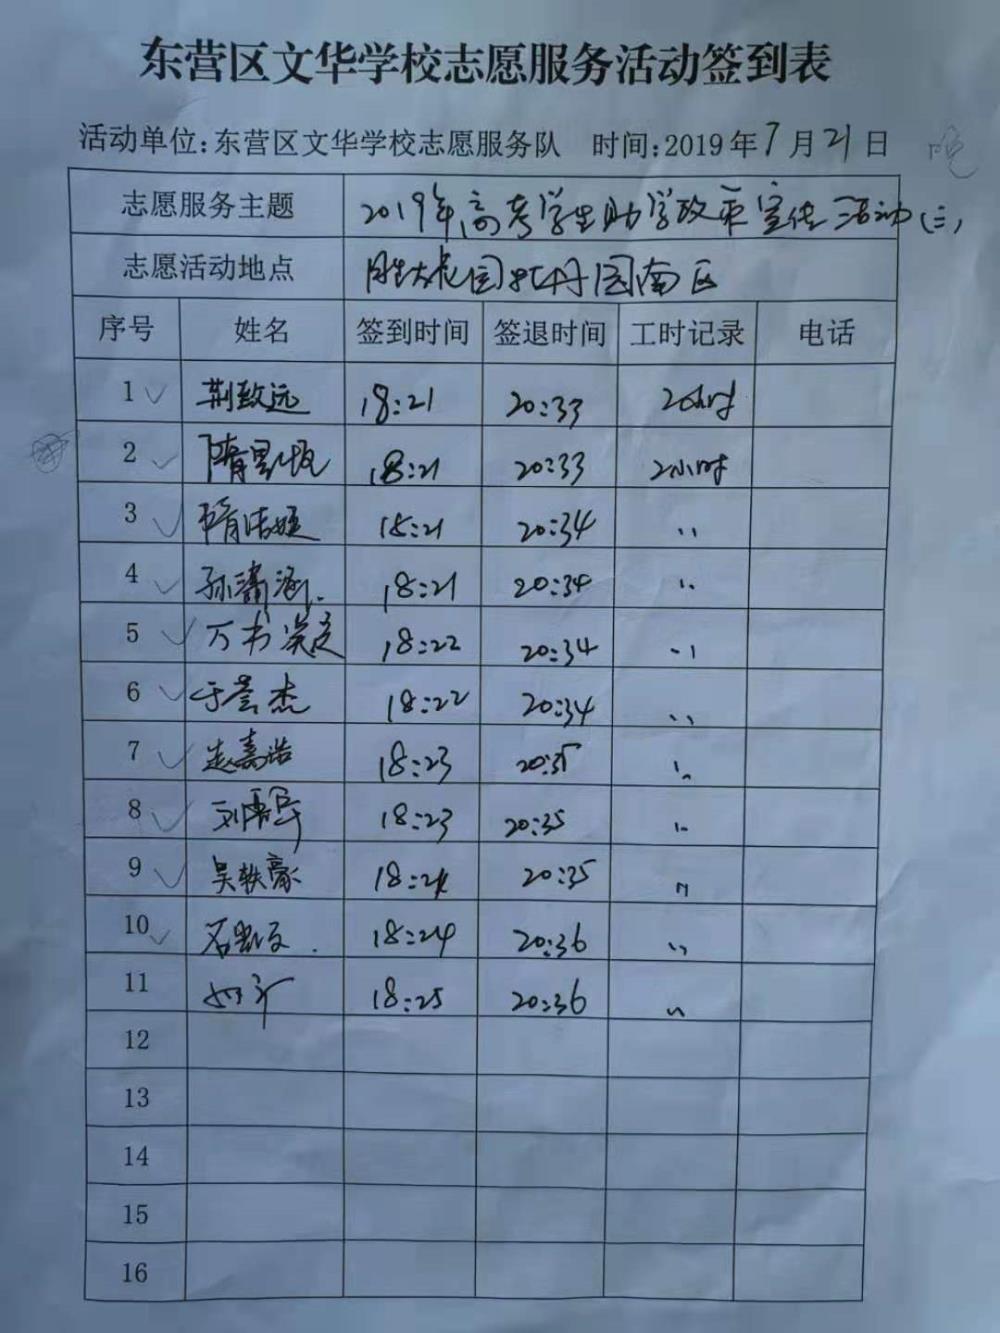 东营区文华学校志愿服务活动签到表
活动单位:东营区文华学校志愿服务队 时间:2019年7月21日 晚
志愿服务主题 2019年高考学生助学政策宣传活动(三)
志愿活动地点 胜大花园牡丹园南区
序号 姓名 签到时间 签退时间 工时记录 电话
1 荆致远 18:21 20:33 2小时
2 隋 18:21 20:33 2小时
3 隋洁 18:21 20:34 〃
4 孙潇涵 18:21 20:34 〃
5 万书 18:22 20:34 〃
6 于芸杰 18:22 20:34 〃
7 赵嘉浩 18:23 20:35 〃
8 刘 18:23 20:35 〃
9 吴轶豪 18:24 20:35 〃
10 石 18:24 20:36 〃
11 18:25 20:36 〃
12
13
14
15
16